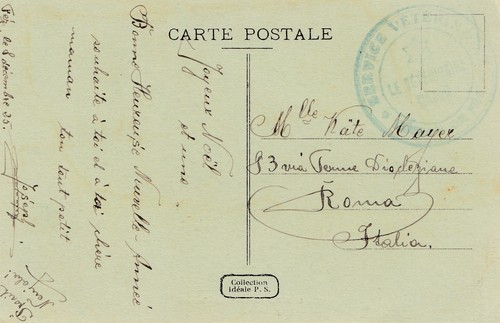 CARTE POSTALE
Fez, le 8 décembre 35.
Joyeux Noël
et une
Bonne Heureuse Nouvelle-Année
souhaite à toi et à toi chère
maman ton tout petit
Joseph
SERVICE
Mlle Käte Mayer
83 via Terme Diocleziane
Roma
Italia.
Collection
Idéale P. S.